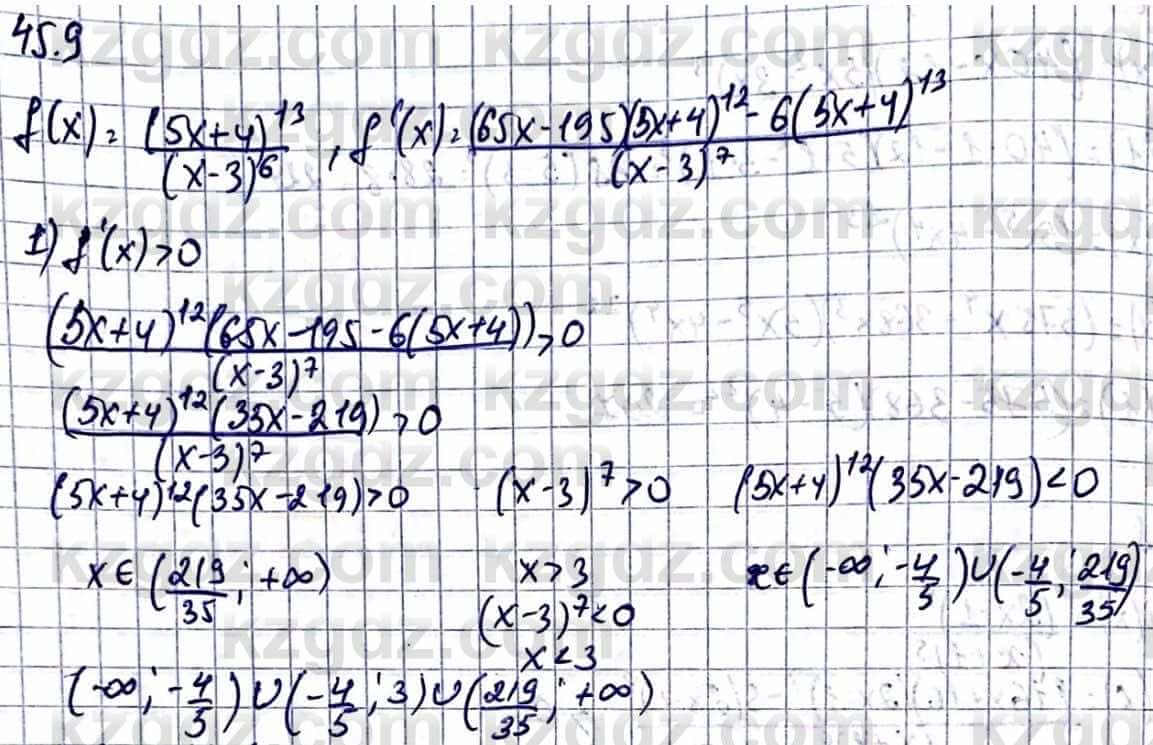 45.9
f(x) = (5x+4)^13 / (x-3)^6 , f'(x) = (65x-195)(5x+4)^12 - 6(5x+4)^13 / (x-3)^7
1) f'(x) > 0
(5x+4)^12 (65x-195-6(5x+4)) / (x-3)^7 > 0
(5x+4)^12 (35x-219) / (x-3)^7 > 0
(5x+4)^12 (35x-219) > 0 (x-3)^7 > 0 (5x+4)^12 (35x-219) < 0
x ∈ (219/35 ; +∞) x > 3 x ∈ (-∞; -4/5) ∪ (-4/5 ; 219/35)
(x-3)^7 < 0
x < 3
(-∞; -4/5) ∪ (-4/5 ; 3) ∪ (219/35 ; +∞)
kzgdz.com